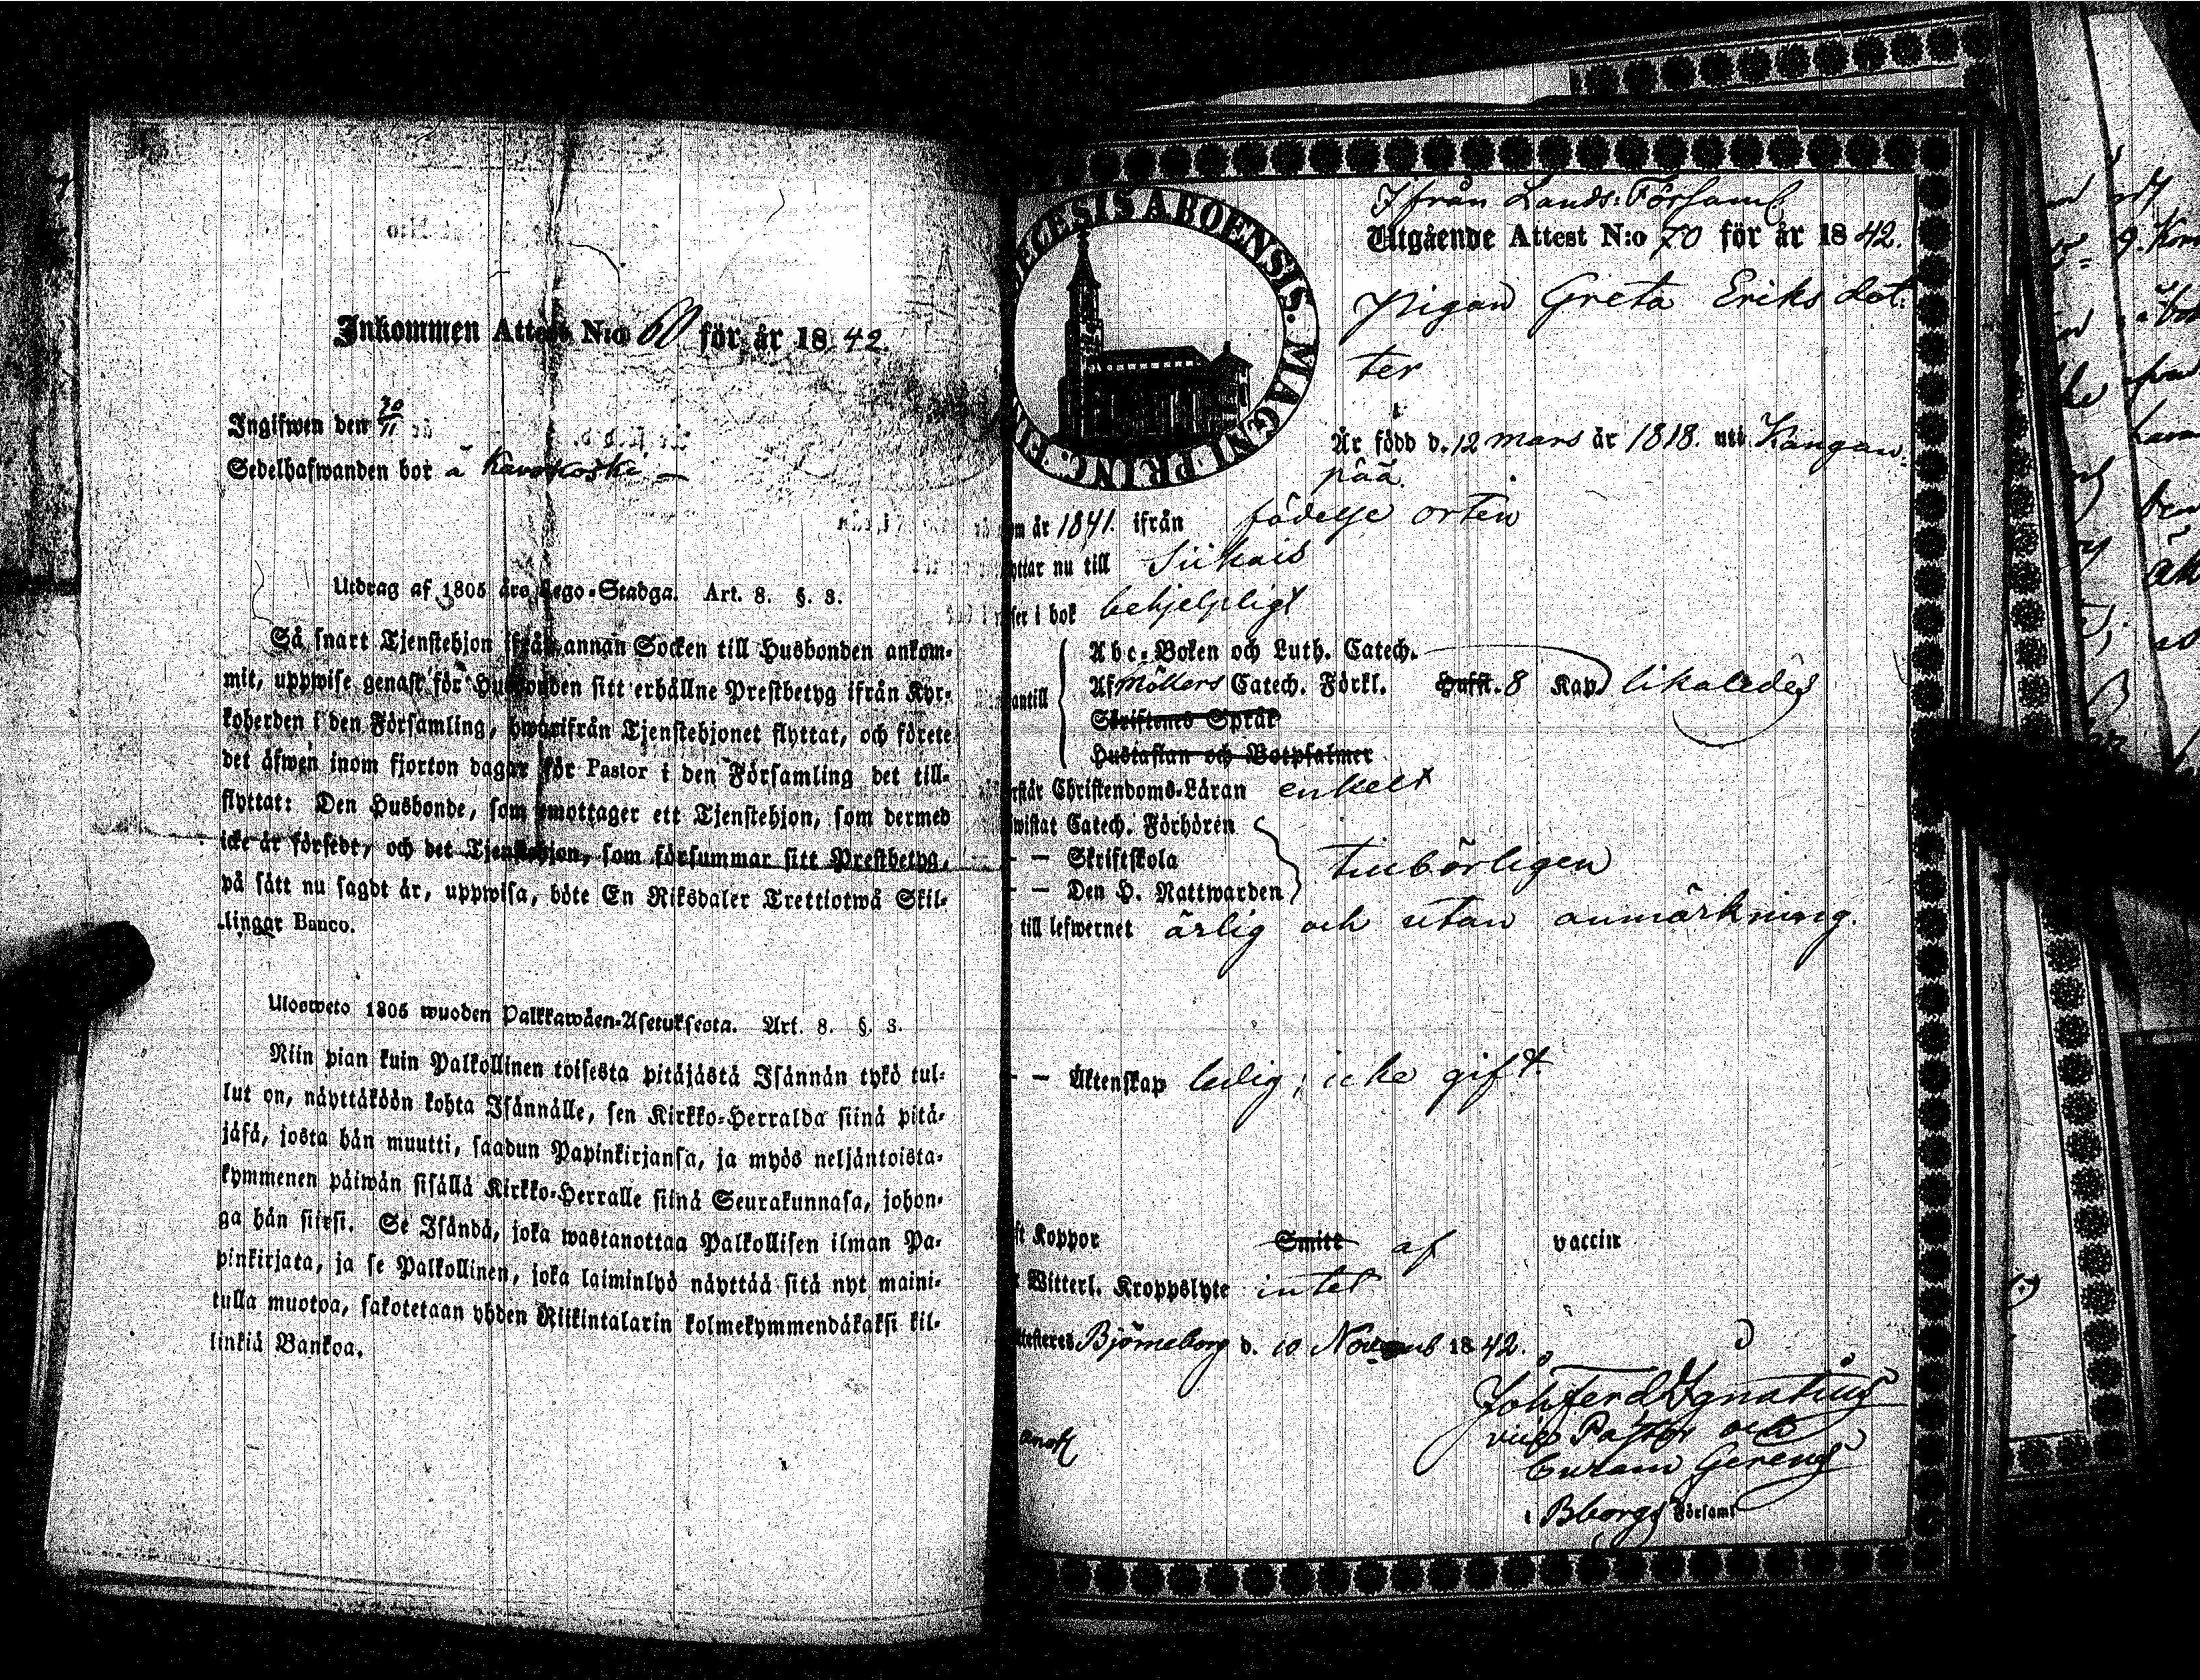 Inkommen Attest N:o 60 för år 1842.
Ingifwen den 30/11
Sedelhafwanden bor å Kavokoski
Utdrag af 1805 års Lego-Stadga. Art. 8. §. 3.
Så snart Tjenstehjon ifrån annan Socken till Husbonden ankom-
mit, uppwise genast för Husbonden sitt erhållne Prestbetyg ifrån Kyr-
koherden i den Församling, hwarifrån Tjenstehjonet flyttat, och förete
det äfwen inom fjorton dagar för Pastor i den Församling det till-
flyttat: Den Husbonde, som emottager ett Tjenstehjon, som dermed
icke är försedt, och det Tjenstehjon, som försummar sitt Prestbetyg,
på sätt nu sagdt är, uppwisa, böte En Riksdaler Trettiotwå Skil-
lingar Banco.
Ulosweto 1805 wuoden Palkkawäen-Asetuksesta. Art. 8. §. 3.
Niin pian kuin Palkollinen toisesta pitäjästä Isännän tykö tul-
lut on, näyttäköön kohta Isännälle, sen Kirkko-Herralda siinä pitä-
jäsä, josta hän muutti, saadun Papinkirjansa, ja myös neljäntoista-
kymmenen päiwän sisällä Kirkko-Herralle siinä Seurakunnasa, johon-
ga hän siirsi. Se Isändä, joka wastanottaa Palkollisen ilman Pa-
pinkirjata, ja se Palkollinen, joka laiminlyö näyttää sitä nyt maini-
tulla muotoa, sakotetaan yhden Riikintalarin kolmekymmendäkaksi kil-
linkiä Bankoa.
ECESIS ABOENSIS. MAGNI PRINC. FIN
Ifrån Lands: Församl
Utgående Attest N:o 70 för år 1842.
Pigan Greta Eriks dot:
ter
Är född d. 12 mars år 1818. uti Kangan-
pää.
om år 1841. ifrån födelse orten
yttar nu till Siikais
ser i bok behjelpligt
Abc-Boken och Luth. Catech.
antill Af Möllers Catech. Förkl. Husst. 8 Kap. likaledes
Skriftenes Språk
Hustaflan och Botpsalmer
rstår Christendoms-Läran enkelt
wistat Catech. Förhören
— — Skriftskola tillbörligen
— — Den H. Nattwarden
till lefwernet ärlig och utan anmärkning.
— — Äktenskap ledig, icke gift.
ft Koppor Smitt af vaccin
Witterl. Kroppslyte intet
Attesteres Björneborg d. 10 Novemb 1842.
Joh Ferd Ignatius
vice Pastor och
Curam Gerens
i Bborgs Församl